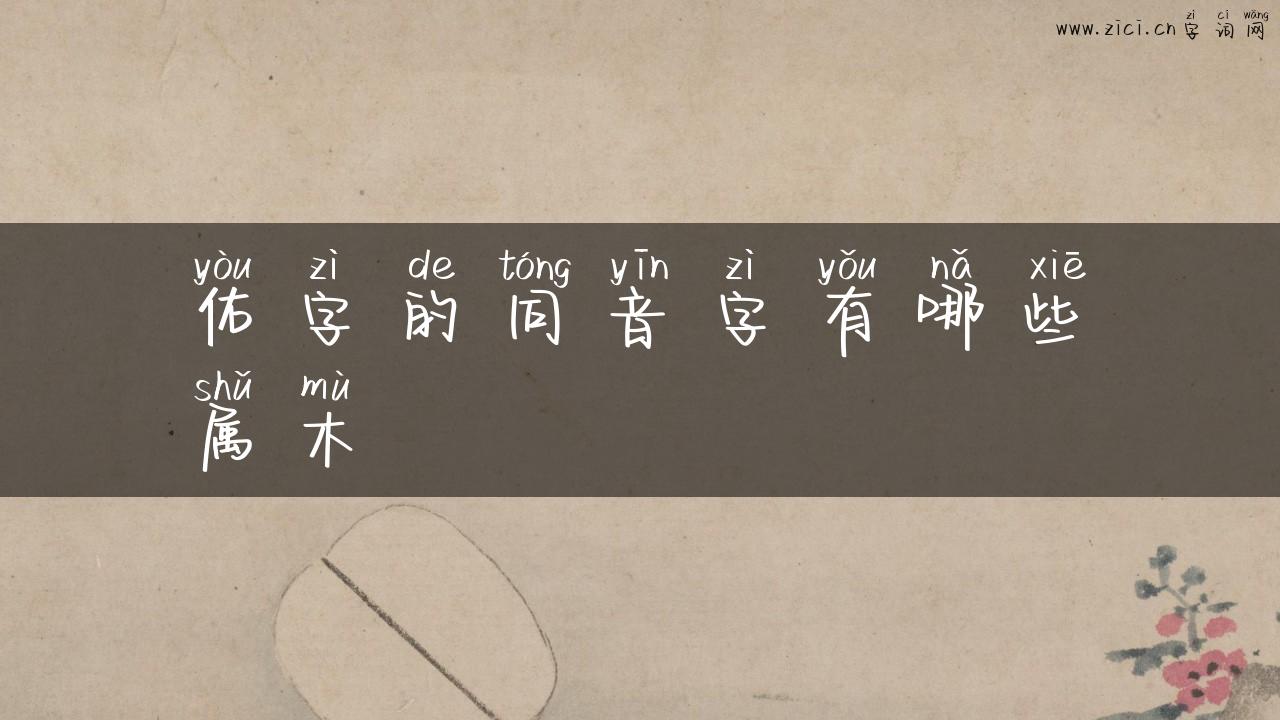 zì cí wǎng
www.zici.cn 字词网
yòu zì de tóng yīn zì yǒu nǎ xiē
佑字的同音字有哪些
shǔ mù
属木